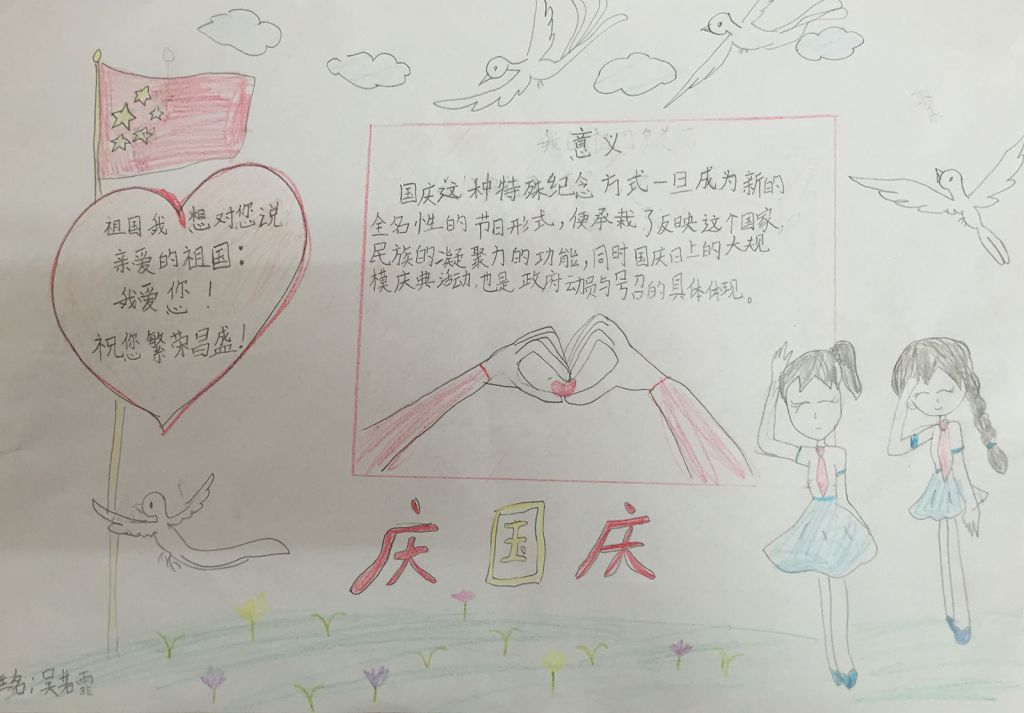 祖国我想对您说
亲爱的祖国：
我爱您！
祝您繁荣昌盛！
意义
国庆这种特殊纪念方式一旦成为新的
全名性的节日形式，便承载了反映这个国家，
民族的凝聚力的功能，同时国庆日上的大规
模庆典活动，也是政府动员与号召的具体体现。
庆国庆
姓名：吴若霏